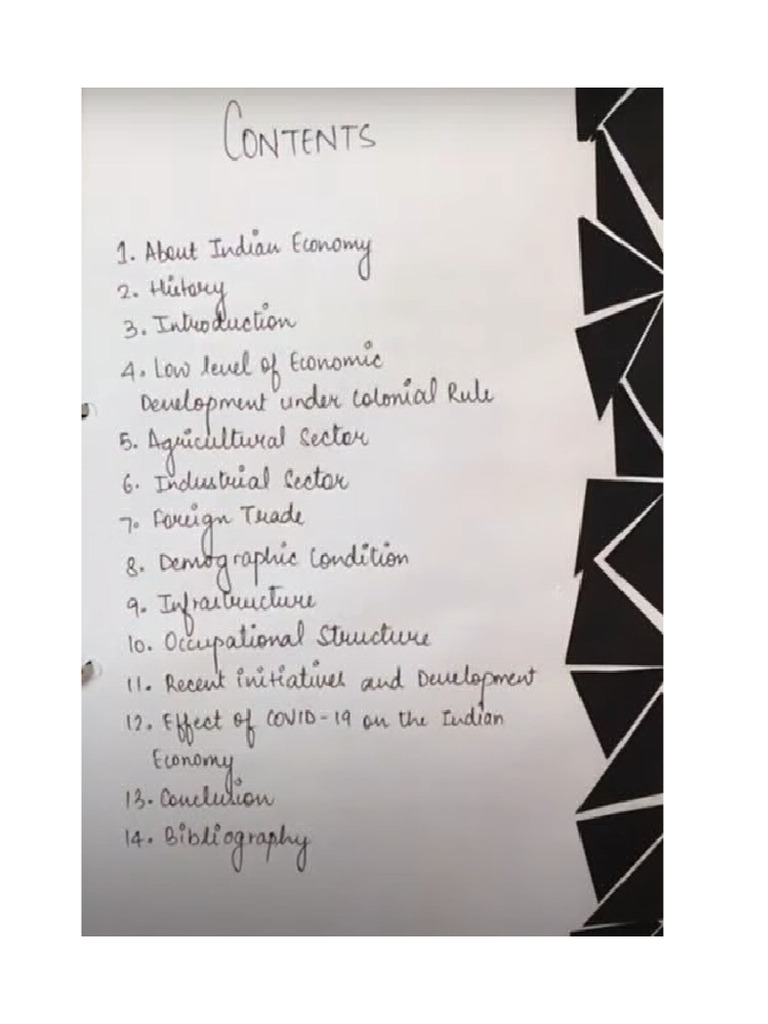 CONTENTS
1. About Indian Economy
2. History
3. Introduction
4. Low level of Economic
Development under Colonial Rule
5. Agricultural Sector
6. Industrial Sector
7. Foreign Trade
8. Demographic Condition
9. Infrastructure
10. Occupational Structure
11. Recent initiatives and Development
12. Effect of COVID-19 on the Indian
Economy
13. Conclusion
14. Bibliography